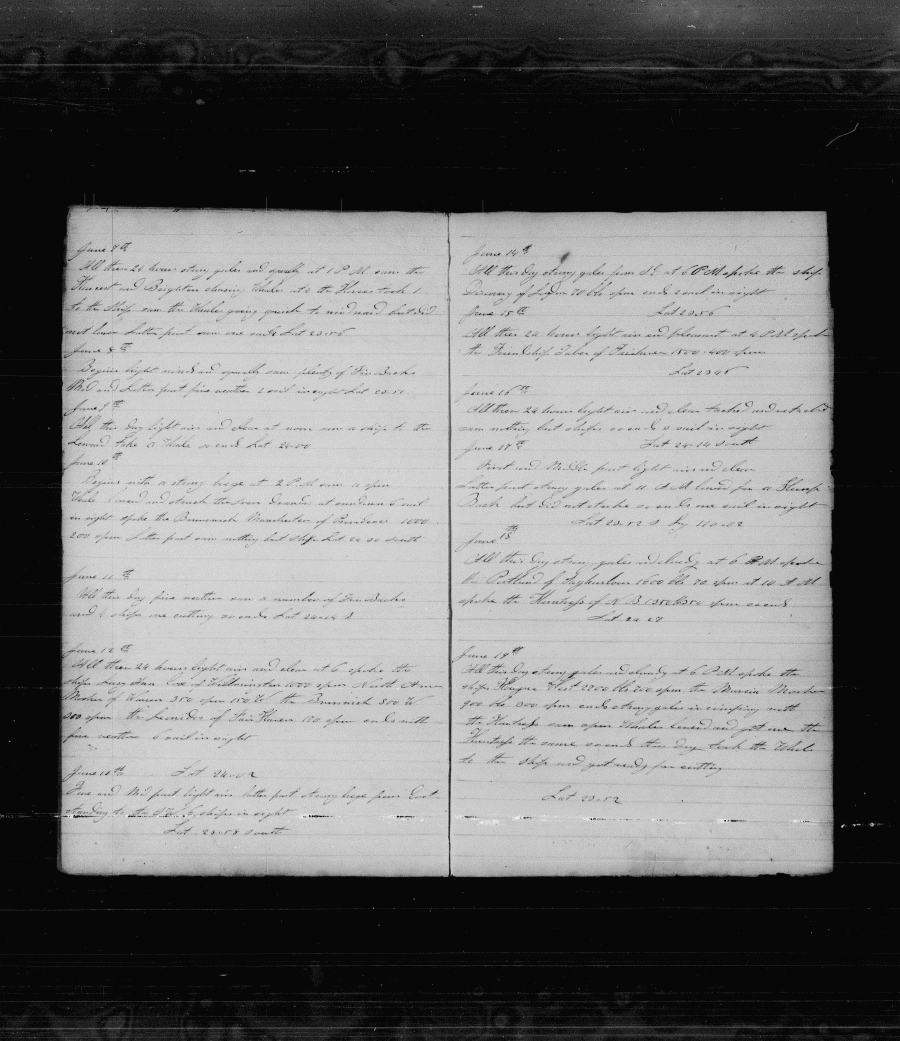 June 7th
All these 24 hours strong gales and squalls at 1 P M saw the
and Brighton chasing Whales at 2 the took 1
to the Ship saw the Whales going quick to windward but did
not lower Latter part saw one sail Lat 23-56
June 8th
Begins light winds and squalls saw plenty of Finbacks
Mid and Latter part fine weather 2 sail in sight Lat 23-51
June 9th
All this day light airs and clear at noon saw a ship to the
Leward take a Whale so ends Lat 24-00
June 10th
Begins with a strong breeze at 2 P M saw a sperm
Whale lowered and struck the at sundown 6 sail
in sight spoke the Brunswick Manchester of 1000
200 sperm Latter part saw nothing but ships Lat 24 30 South
June 11th
All this day fine weather saw a number of Finbacks
and 4 ships one cutting so ends Lat 24-14 S
June 12th
All these 24 hours light airs and clear at 6 spoke the
ship Lucy Ann Cox of Wilmington 1000 sperm North
Mosher of Warren 350 sperm 150 W the Brunswick 800 W
300 sperm the of Fair Haven 150 sperm ends with
fine weather 6 sail in sight
June 13th Lat 24-02
First and Mid part light airs latter part strong breze from East
standing to the 6 ships in sight
Lat 23-58 South
June 14th
All this day strong gales from SE at 6 P M spoke the ship
Discovery of 70 bls sperm ends 2 sail in sight
June 15th Lat 23-56
All these 24 hours light air and pleasant at 4 P M spoke
the Friendship Taber of Fairhaven 1800-400 sperm
Lat 23 46
June 16th
All these 24 hours light air and clear tacked and retacked
saw nothing but ships so ends 2 sail in sight
June 17th Lat 24-14 South
First and Middle part light airs and clear
Latter part strong gales at 11 A M lowerd for a
Back but did not strike so ends one sail in sight
Lat 23-52 S by 110-02
June 18th
All this day strong gales and cloudy at 6 P M spoke
the Portland of Sagharbour 1600 bls 70 sperm at 10 A M
spoke the Huntress of N B 1350 350 sperm so ends
Lat 24 27
June 19th
All this day strong gales and cloudy at 6 P M spoke the
ship West 2200 bls 200 sperm the Marcia Mosher
900 bls 300 sperm ends strong gales in company with
the Huntress saw sperm Whales lowerd and got one the
Huntress the same so ends this day took the Whale
to the ship and got ready for cutting
Lat 23-52